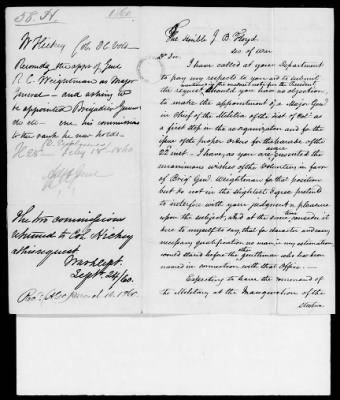 38. H. 1860.
W Hickey Col. D C Vols
Seconds the appt of Genl
R. C. Weightman as Major
General — and asking to
be appointed Brigadier Genl
his commission
to the rank he now holds —
Feby 18 1860
The two commissions
returned to Col. Hickey
at his request
War Dept.
Sept. 24/60.
The Honble J. B. Floyd
Sec of War
Dr Sir
I have called at your Department
to pay my respects to you and to submit
the request, should you have no objection,
to make the appointment of a Major Genl
in chief of the Militia of the Dist of Col: as
a first step in the reorganization and for the
issue of the proper orders for the parade of the
22nd inst — I
unanimous wishes of the Volunteers in favor
of Brigr Genl Weightman for that position
but do not in the slightest degree pretend
to interfere with your judgment & pleasure
upon the subject, and at the same time consider it
due to myself to say, that for character and every
necessary qualification no man in my estimation
could stand before the gentleman who has been
named in connection with that Office. —
Expecting to have the command of
the Military at the Inauguration of the
Statue